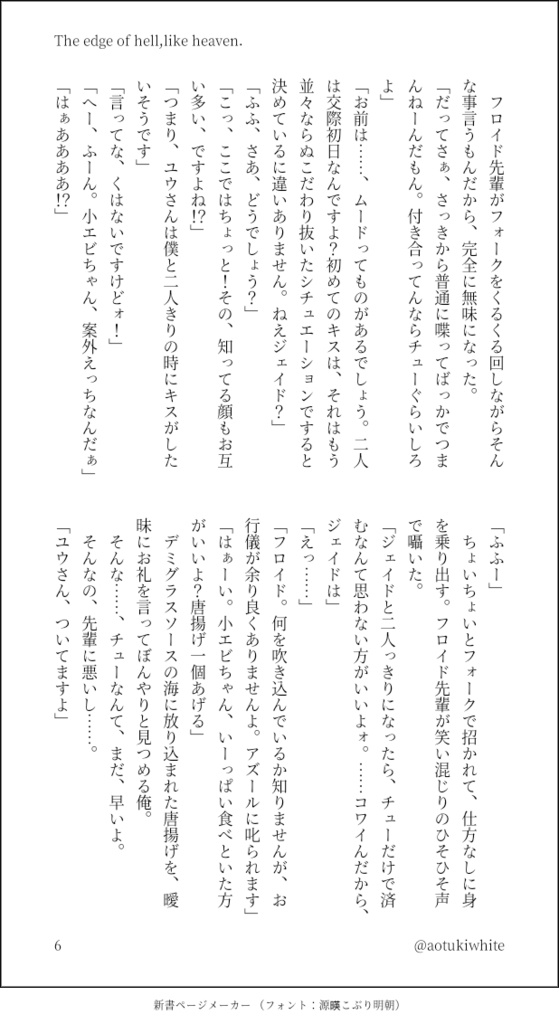 The edge of hell,like heaven.
フロイド先輩がフォークをくるくる回しながらそん
な事言うもんだから、完全に無味になった。
「だってさぁ、さっきから普通に喋ってばっかでつま
んねーんだもん。付き合ってんならチューぐらいしろ
よ」
「お前は……、ムードってものがあるでしょう。二人
は交際初日なんですよ？初めてのキスは、それはもう
並々ならぬこだわり抜いたシチュエーションですると
決めているに違いありません。ねえジェイド？」
「ふふ、さあ、どうでしょう？」
「こっ、ここではちょっと！その、知ってる顔もお互
い多い、ですよね!?」
「つまり、ユウさんは僕と二人きりの時にキスがした
いそうです」
「言ってな、くはないですけどォ！」
「へー、ふーん。小エビちゃん、案外えっちなんだぁ」
「はぁああああ!?」
「ふふー」
ちょいちょいとフォークで招かれて、仕方なしに身
を乗り出す。フロイド先輩が笑い混じりのひそひそ声
で囁いた。
「ジェイドと二人っきりになったら、チューだけで済
むなんて思わない方がいいよォ。……コワイんだから、
ジェイドは」
「えっ……」
「フロイド。何を吹き込んでいるか知りませんが、お
行儀が余り良くありませんよ。アズールに叱られます」
「はぁーい。小エビちゃん、いーっぱい食べといた方
がいいよ？唐揚げ一個あげる」
デミグラスソースの海に放り込まれた唐揚げを、曖
昧にお礼を言ってぼんやりと見つめる俺。
そんな……、チューなんて、まだ、早いよ。
そんなの、先輩に悪いし……。
「ユウさん、ついてますよ」
6
@aotukiwhite
新書ページメーカー（フォント：源暎こぶり明朝）